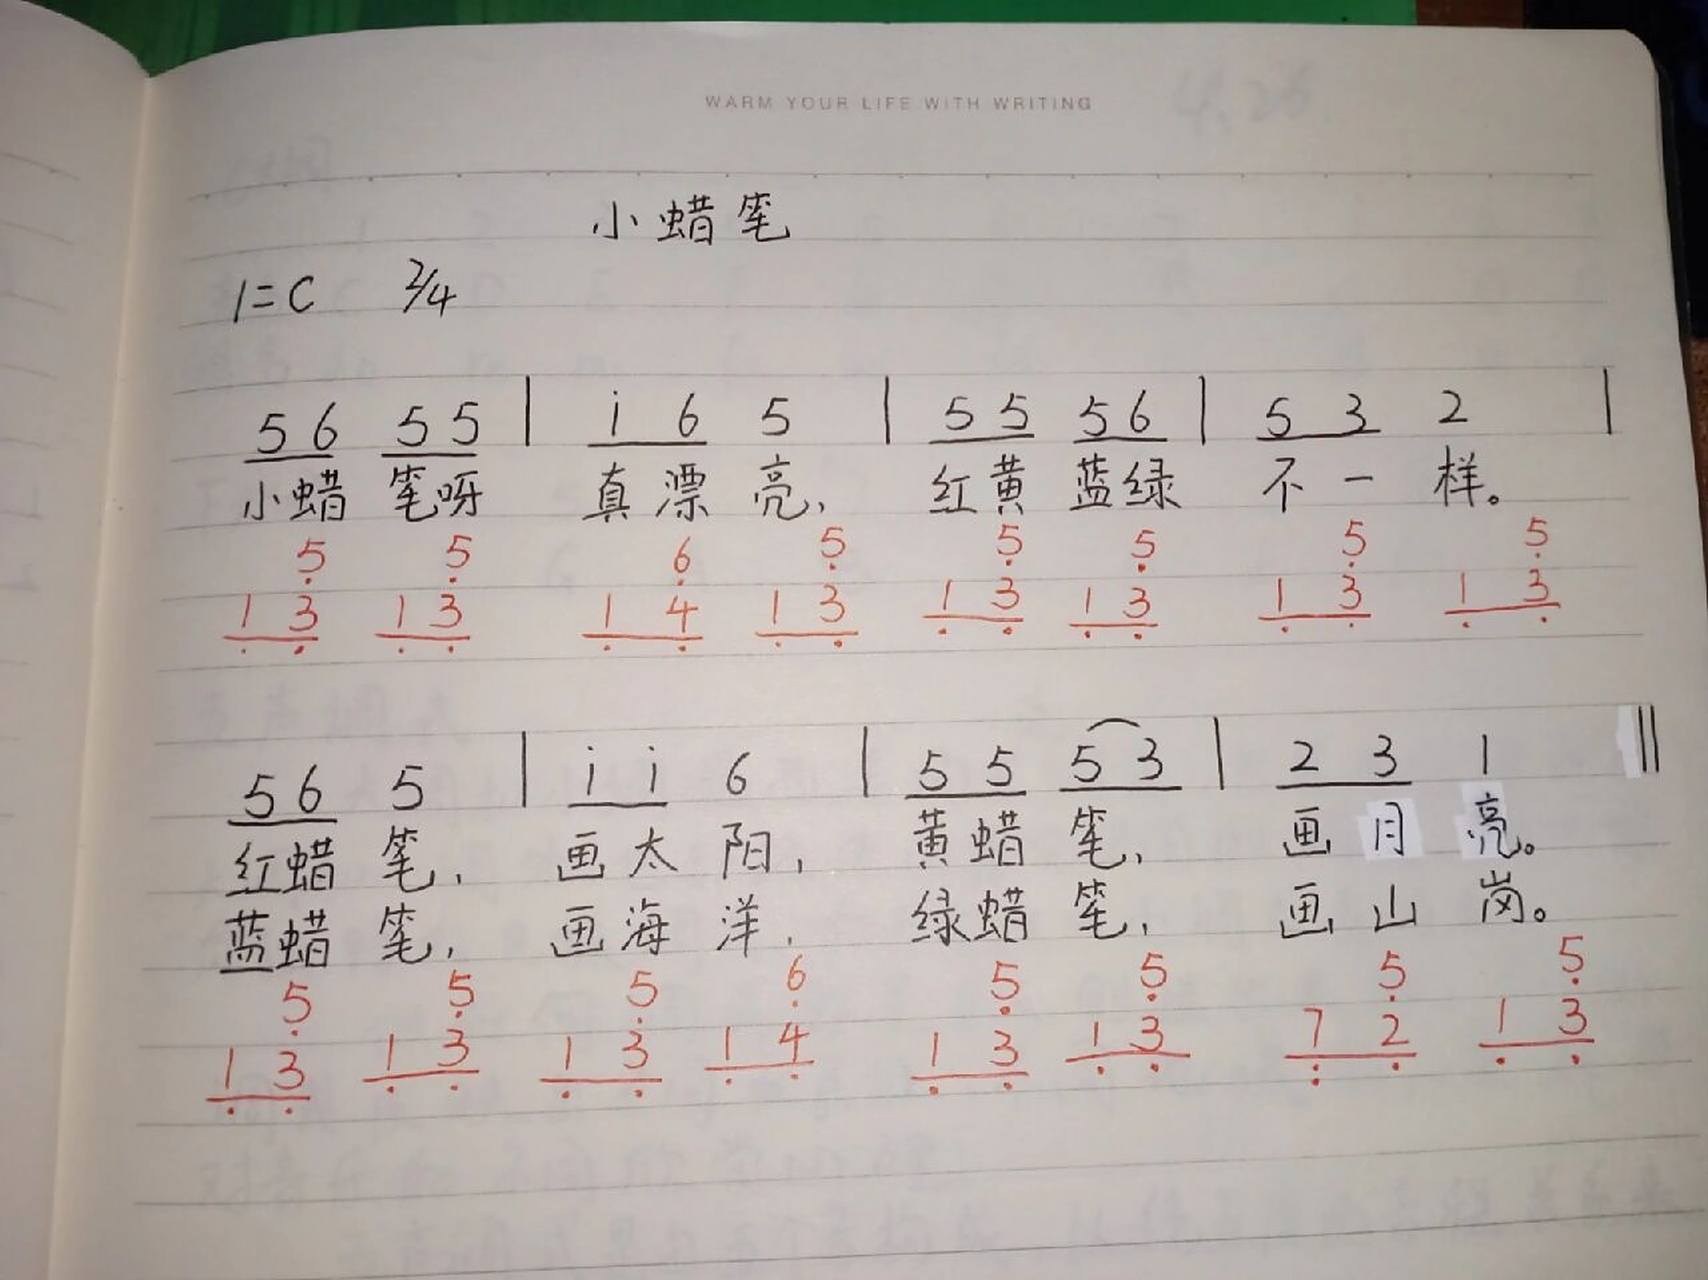 WARM YOUR LIFE WITH WRITING
小蜡笔
1=C 2/4
56 55 | i 6 5 | 55 56 | 5 3 2 |
小蜡 笔呀 真漂亮, 红黄 蓝绿 不一样。
5̣ 5̣ 6̣ 5̣ 5̣ 5̣ 5̣ 5̣
1̣ 3̣ 1̣ 3̣ 1̣ 4̣ 1̣ 3̣ 1̣ 3̣ 1̣ 3̣ 1̣ 3̣ 1̣ 3̣
56 5 | i i 6 | 5 5 5 3 | 2 3 1 ‖
红蜡 笔, 画太阳, 黄蜡笔, 画月亮。
蓝蜡 笔, 画海洋, 绿蜡笔, 画山岗。
5̣ 5̣ 5̣ 6̣ 5̣ 5̣ 5̣ 5̣
1̣ 3̣ 1̣ 3̣ 1̣ 3̣ 1̣ 4̣ 1̣ 3̣ 1̣ 3̣ 7̣ 2̣ 1̣ 3̣